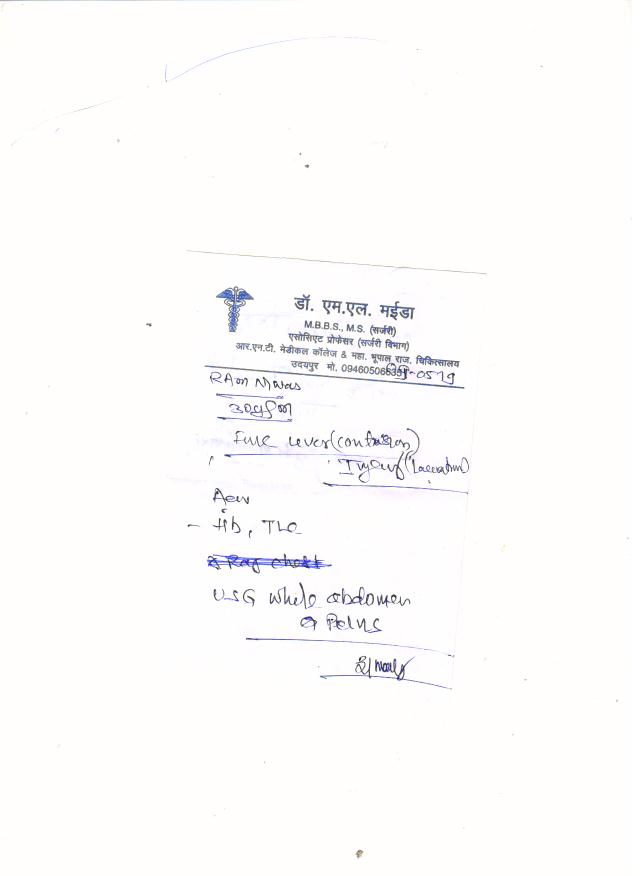 डॉ. एम.एल. मईडा
M.B.B.S., M.S. (सर्जरी)
एसोसिएट प्रोफेसर (सर्जरी विभाग)
आर.एन.टी. मेडीकल कॉलेज & महा. भूपाल राज. चिकित्सालय
उदयपुर मो.
RAm Niwas
liver (contusion)
Injury (Laceration)
Adv
- Hb, TLC
X Ray chest
USG whole abdomen
& Pelvis